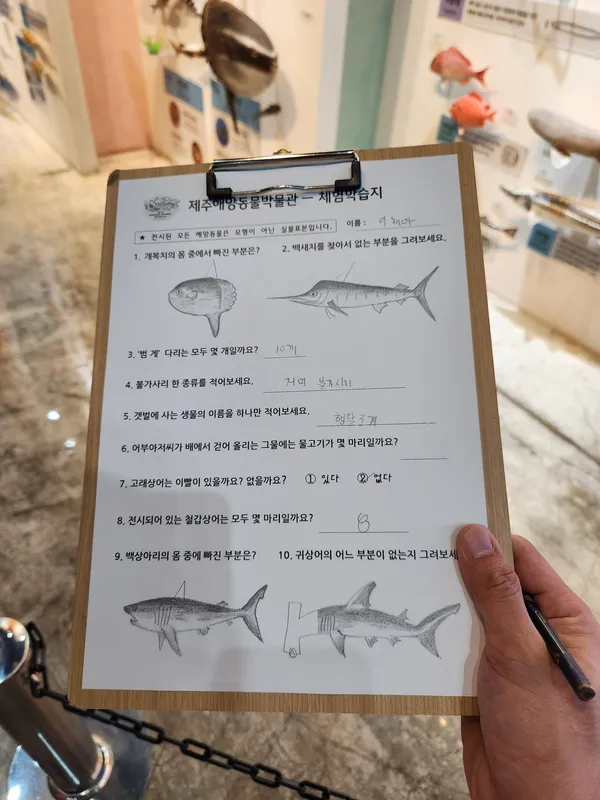 제주해양동물박물관 — 체험학습지
★ 전시된 모든 해양동물은 모형이 아닌 실물표본입니다. 이름 :
1. 개복치의 몸 중에서 빠진 부분은? 2. 백새치를 찾아서 없는 부분을 그려보세요.
3. '범 게' 다리는 모두 몇 개일까요? 10개
4. 불가사리 한 종류를 적어보세요. 거미 불가사리
5. 갯벌에 사는 생물의 이름을 하나만 적어보세요.
6. 어부아저씨가 배에서 걷어 올리는 그물에는 물고기가 몇 마리일까요?
7. 고래상어는 이빨이 있을까요? 없을까요? ① 있다 ② 없다
8. 전시되어 있는 철갑상어는 모두 몇 마리일까요? 8
9. 백상아리의 몸 중에 빠진 부분은? 10. 귀상어의 어느 부분이 없는지 그려보세